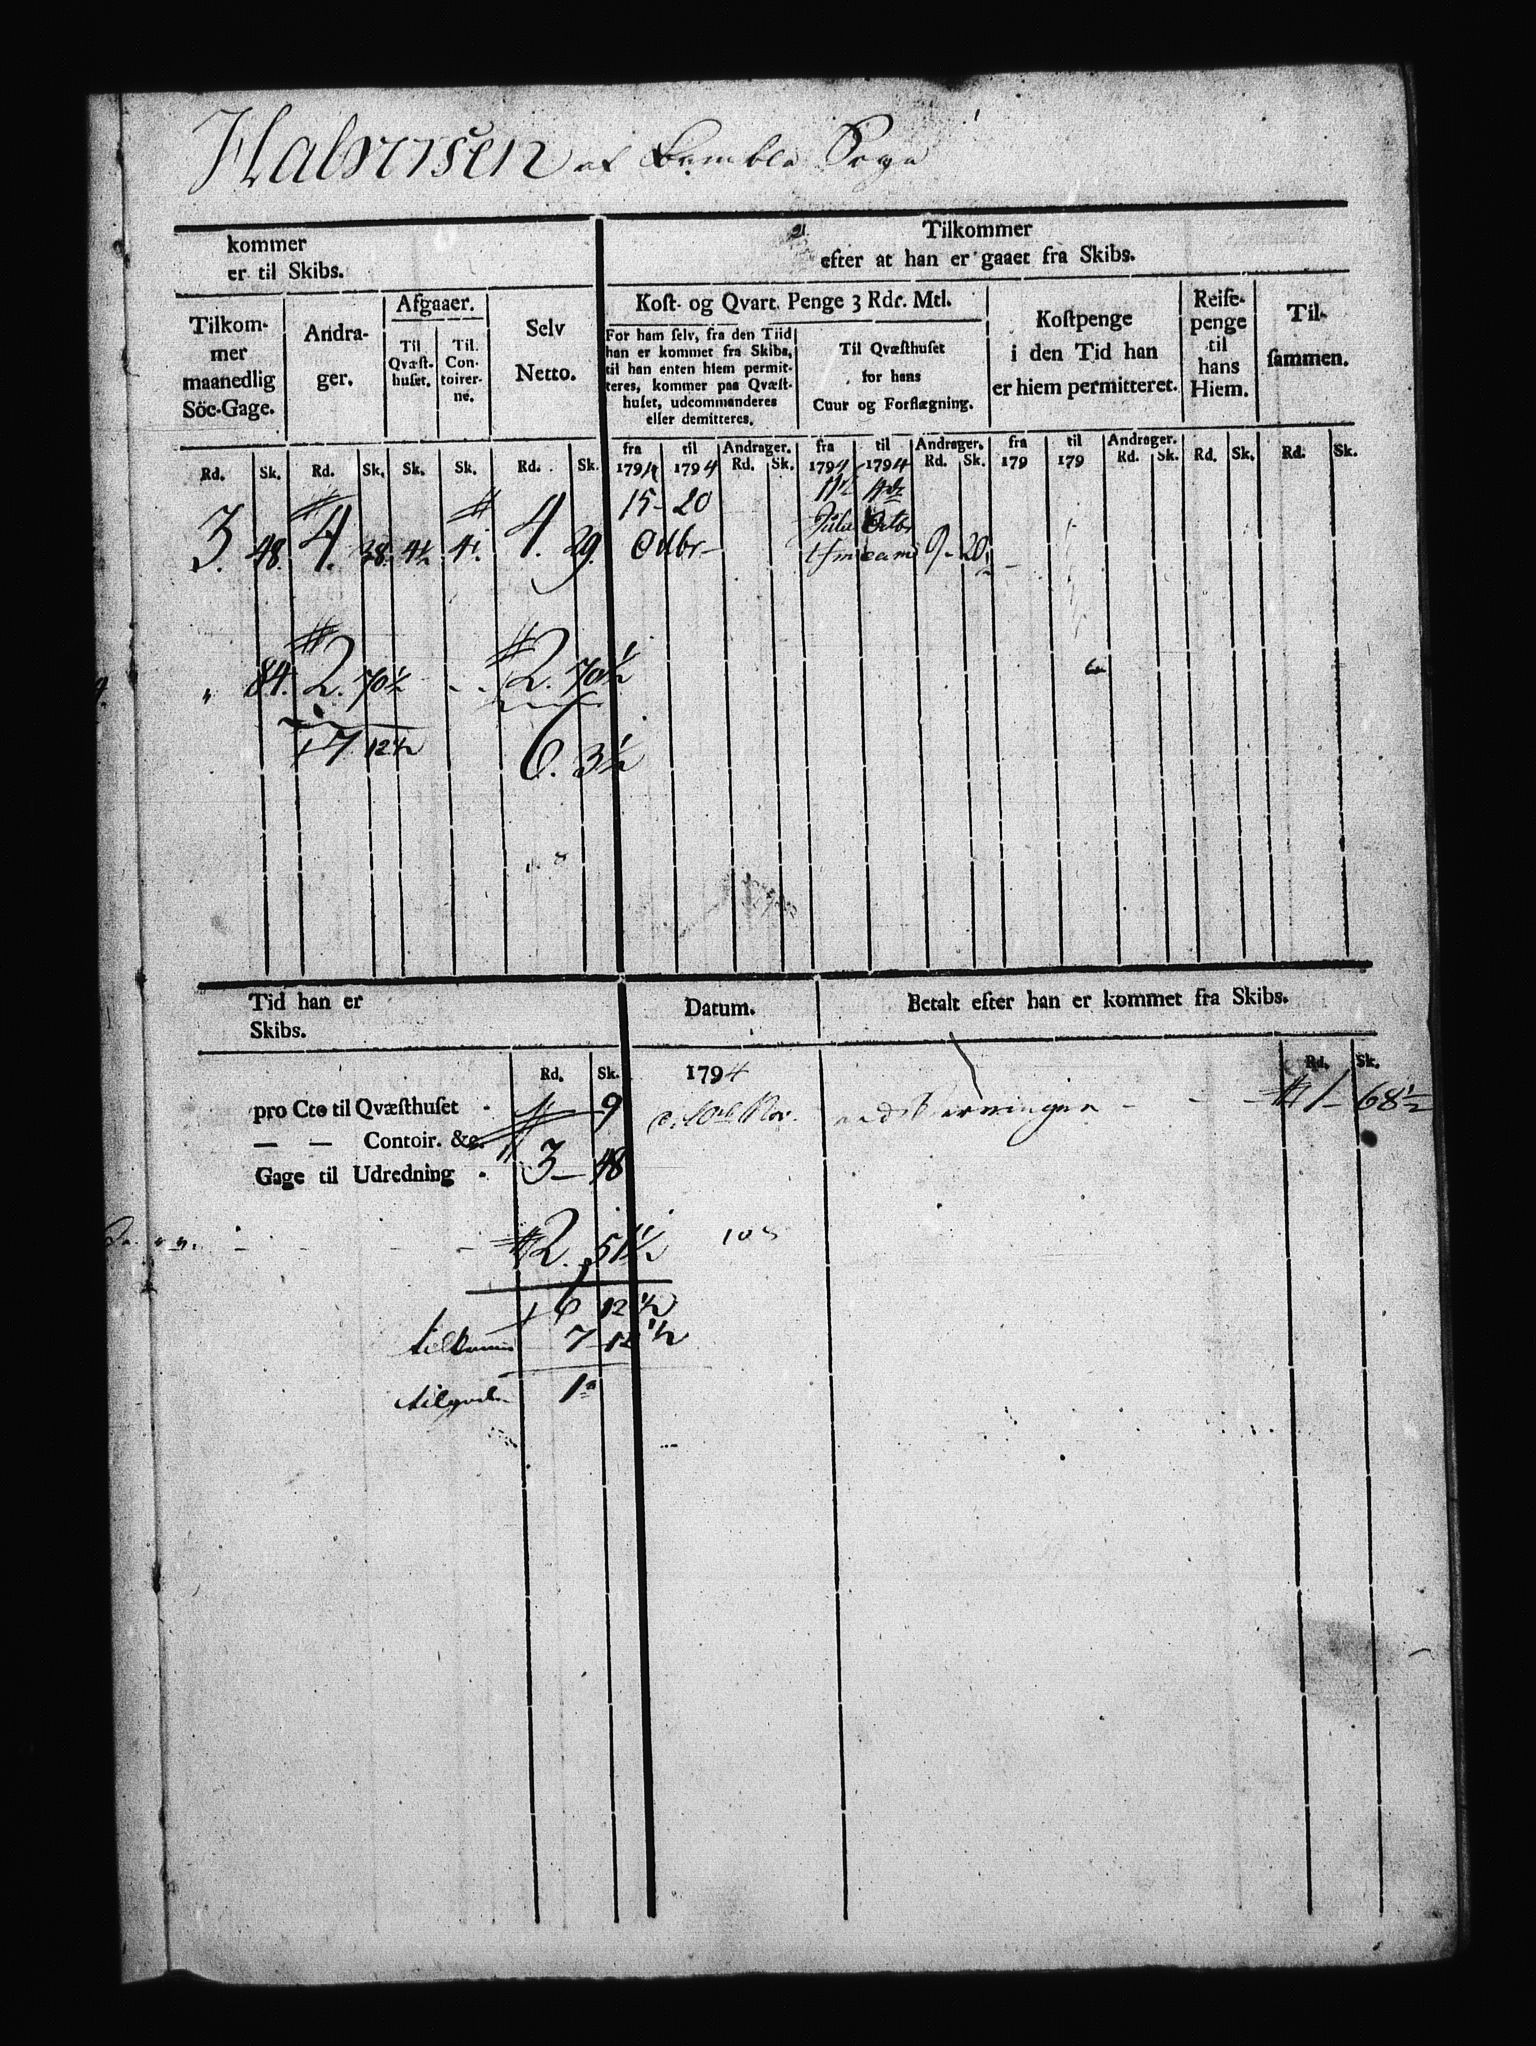 Halvorsen af Bamble Sogn
kommer
er til Skibs.
Tilkommer
efter at han er gaaet fra Skibs.
Tilkom-
mer
maanedlig
Söe-Gage.
Andra-
ger.
Afgaaer.
Til
Qvæst-
huset.
Til
Con-
toirer-
ne.
Selv
Netto.
Kost- og Qvart. Penge 3 Rdr. Mtl.
For ham selv, fra den Tiid
han er kommet fra Skibs,
til han enten hiem permit-
teres, kommer paa Qvæst-
huset, udcommanderes
eller demitteres.
Til Qvæsthuset
for hans
Cuur og Forflægning.
Kostpenge
i den Tid han
er hiem permitteret.
Reise-
penge
til
hans
Hiem.
Til-
sammen.
fra til Andrager. fra til Andrager. fra til Andrager.
Rd. Sk. Rd. Sk. Sk. Sk. Rd. Sk. 1794 1794 Rd. Sk. 1794 1794 Rd. Sk. 179 179 Rd. Sk. Rd. Sk. Rd. Sk.
15 - 20
3. 48. 4. 38. 4½ 4½. 4. 29. Octbr - 9 - 20½
Julii Octbr
„ 84. 2. 70½ - - 2. 70½
7 12½ 6. 3½
Tid han er
Skibs.
Datum.
Betalt efter han er kommet fra Skibs.
Rd. Sk. 1794 Rd. Sk.
pro Cto til Qvæsthuset - 9
d. 10de Nov. - - - 1 - 68½
— — Contoir. &c.
Gage til Udredning - 3 - 48
- - - - 2. 51½
6 12½
7 - 12½
1